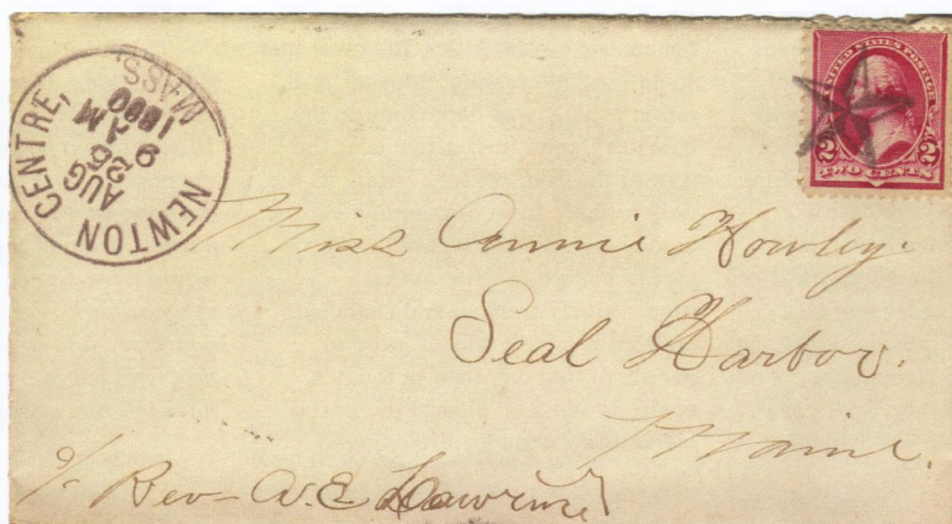 NEWTON CENTRE, MASS.
AUG
25
9
AM
1890
UNITED STATES POSTAGE
2 2
TWO CENTS
Miss Annie Howley.
Seal Harbor.
Maine.
c/o Rev A.E. Lawrence